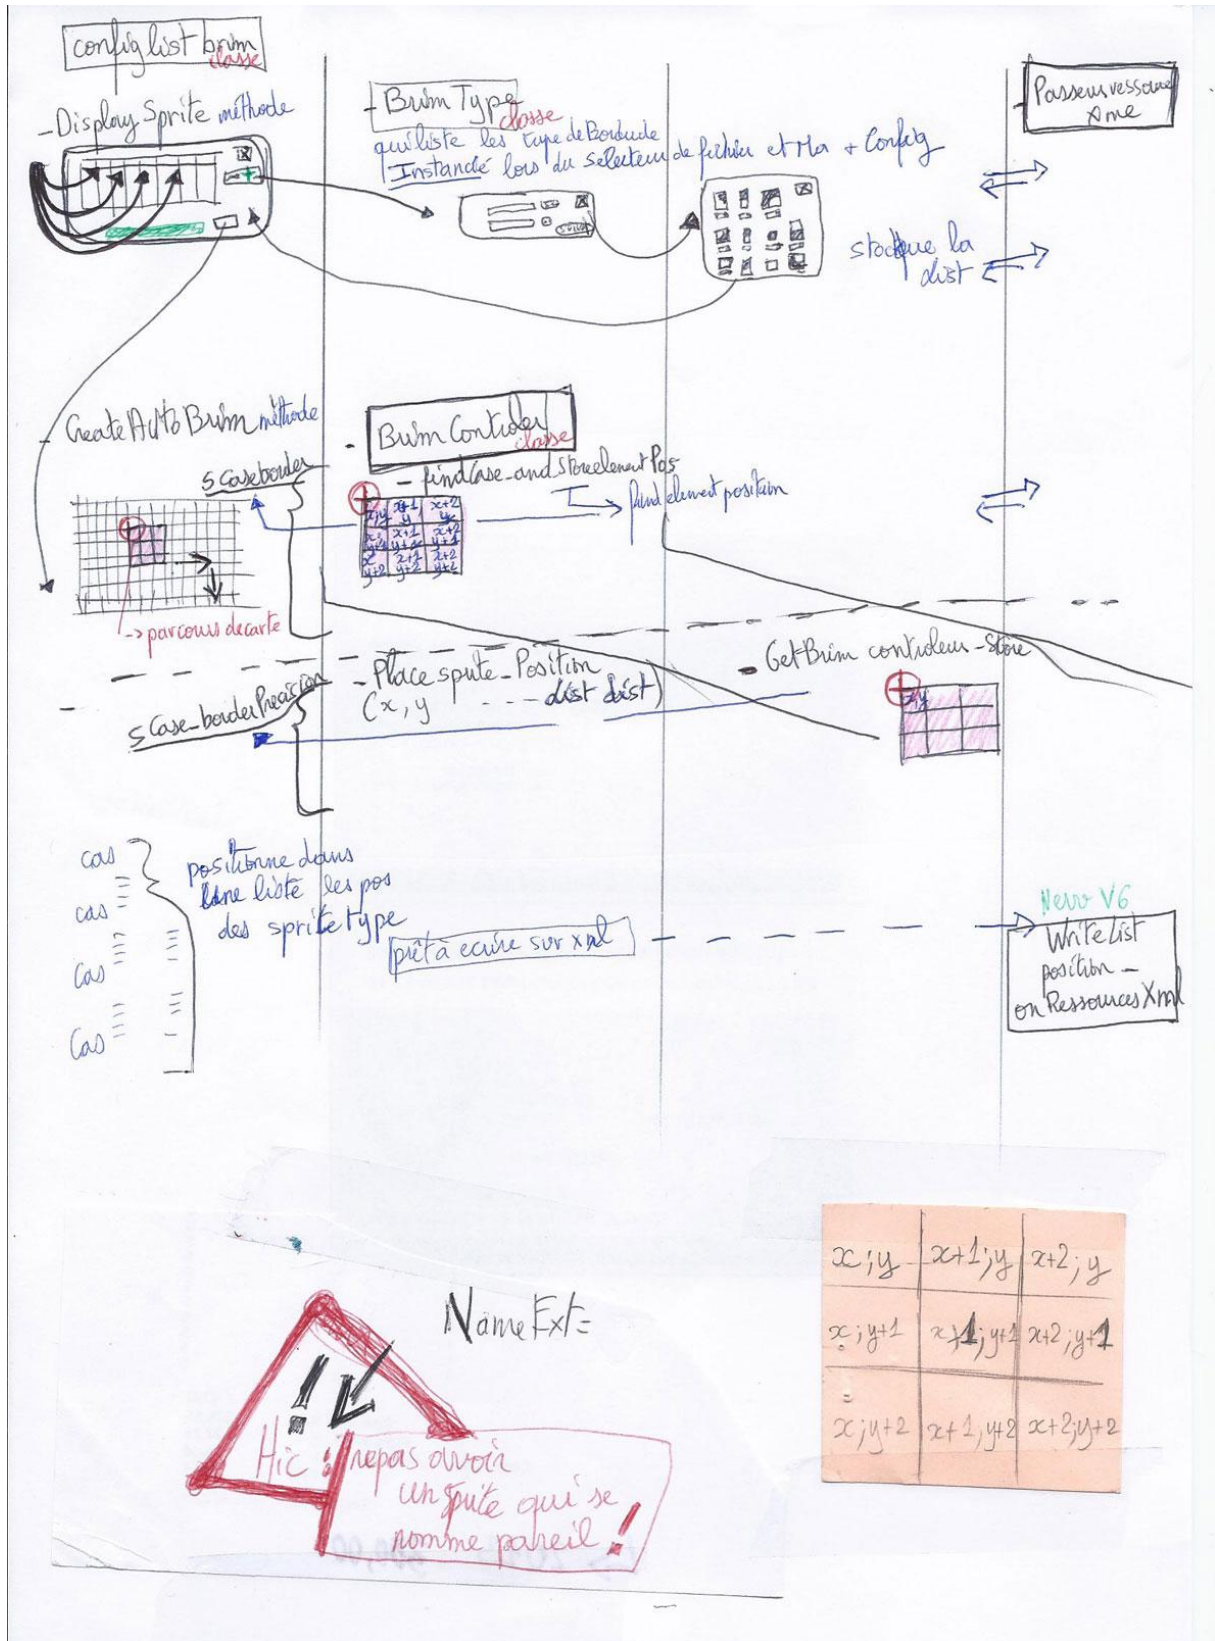 config list brim
classe
- Display Sprite méthode
- Brim Type
classe
qui liste les type de Bordude
Instancié lors du sélecteur de fichier et Ma + Config
Passeur ressource
stocke la
list
- Create AUto Brim méthode
5 Case border
Brim Controler
classe
- find Case_and Store element Pos
find element position
x;y x+1 y x+2 y
x; y+1 x+1 y+1 x+2 y+1
x y+2 x+1 y+2 x+2 y+2
-> parcours de carte
- Place sprite_Position
(x, y ---- list list)
- Get Brim controleur_Store
x,y
5 Case_border Précision
cas
cas
Cas
Cas
positionne dans
une liste les pos
des sprite type
prêt à ecrire sur xml
New V6
Write List
position_
on Ressources Xml
Name Ext=
!
Hic : ne pas avoir
un sprite qui se
nomme pareil !
x;y x+1;y x+2;y
x;y+1 x+1;y+1 x+2;y+1
x;y+2 x+1;y+2 x+2;y+2